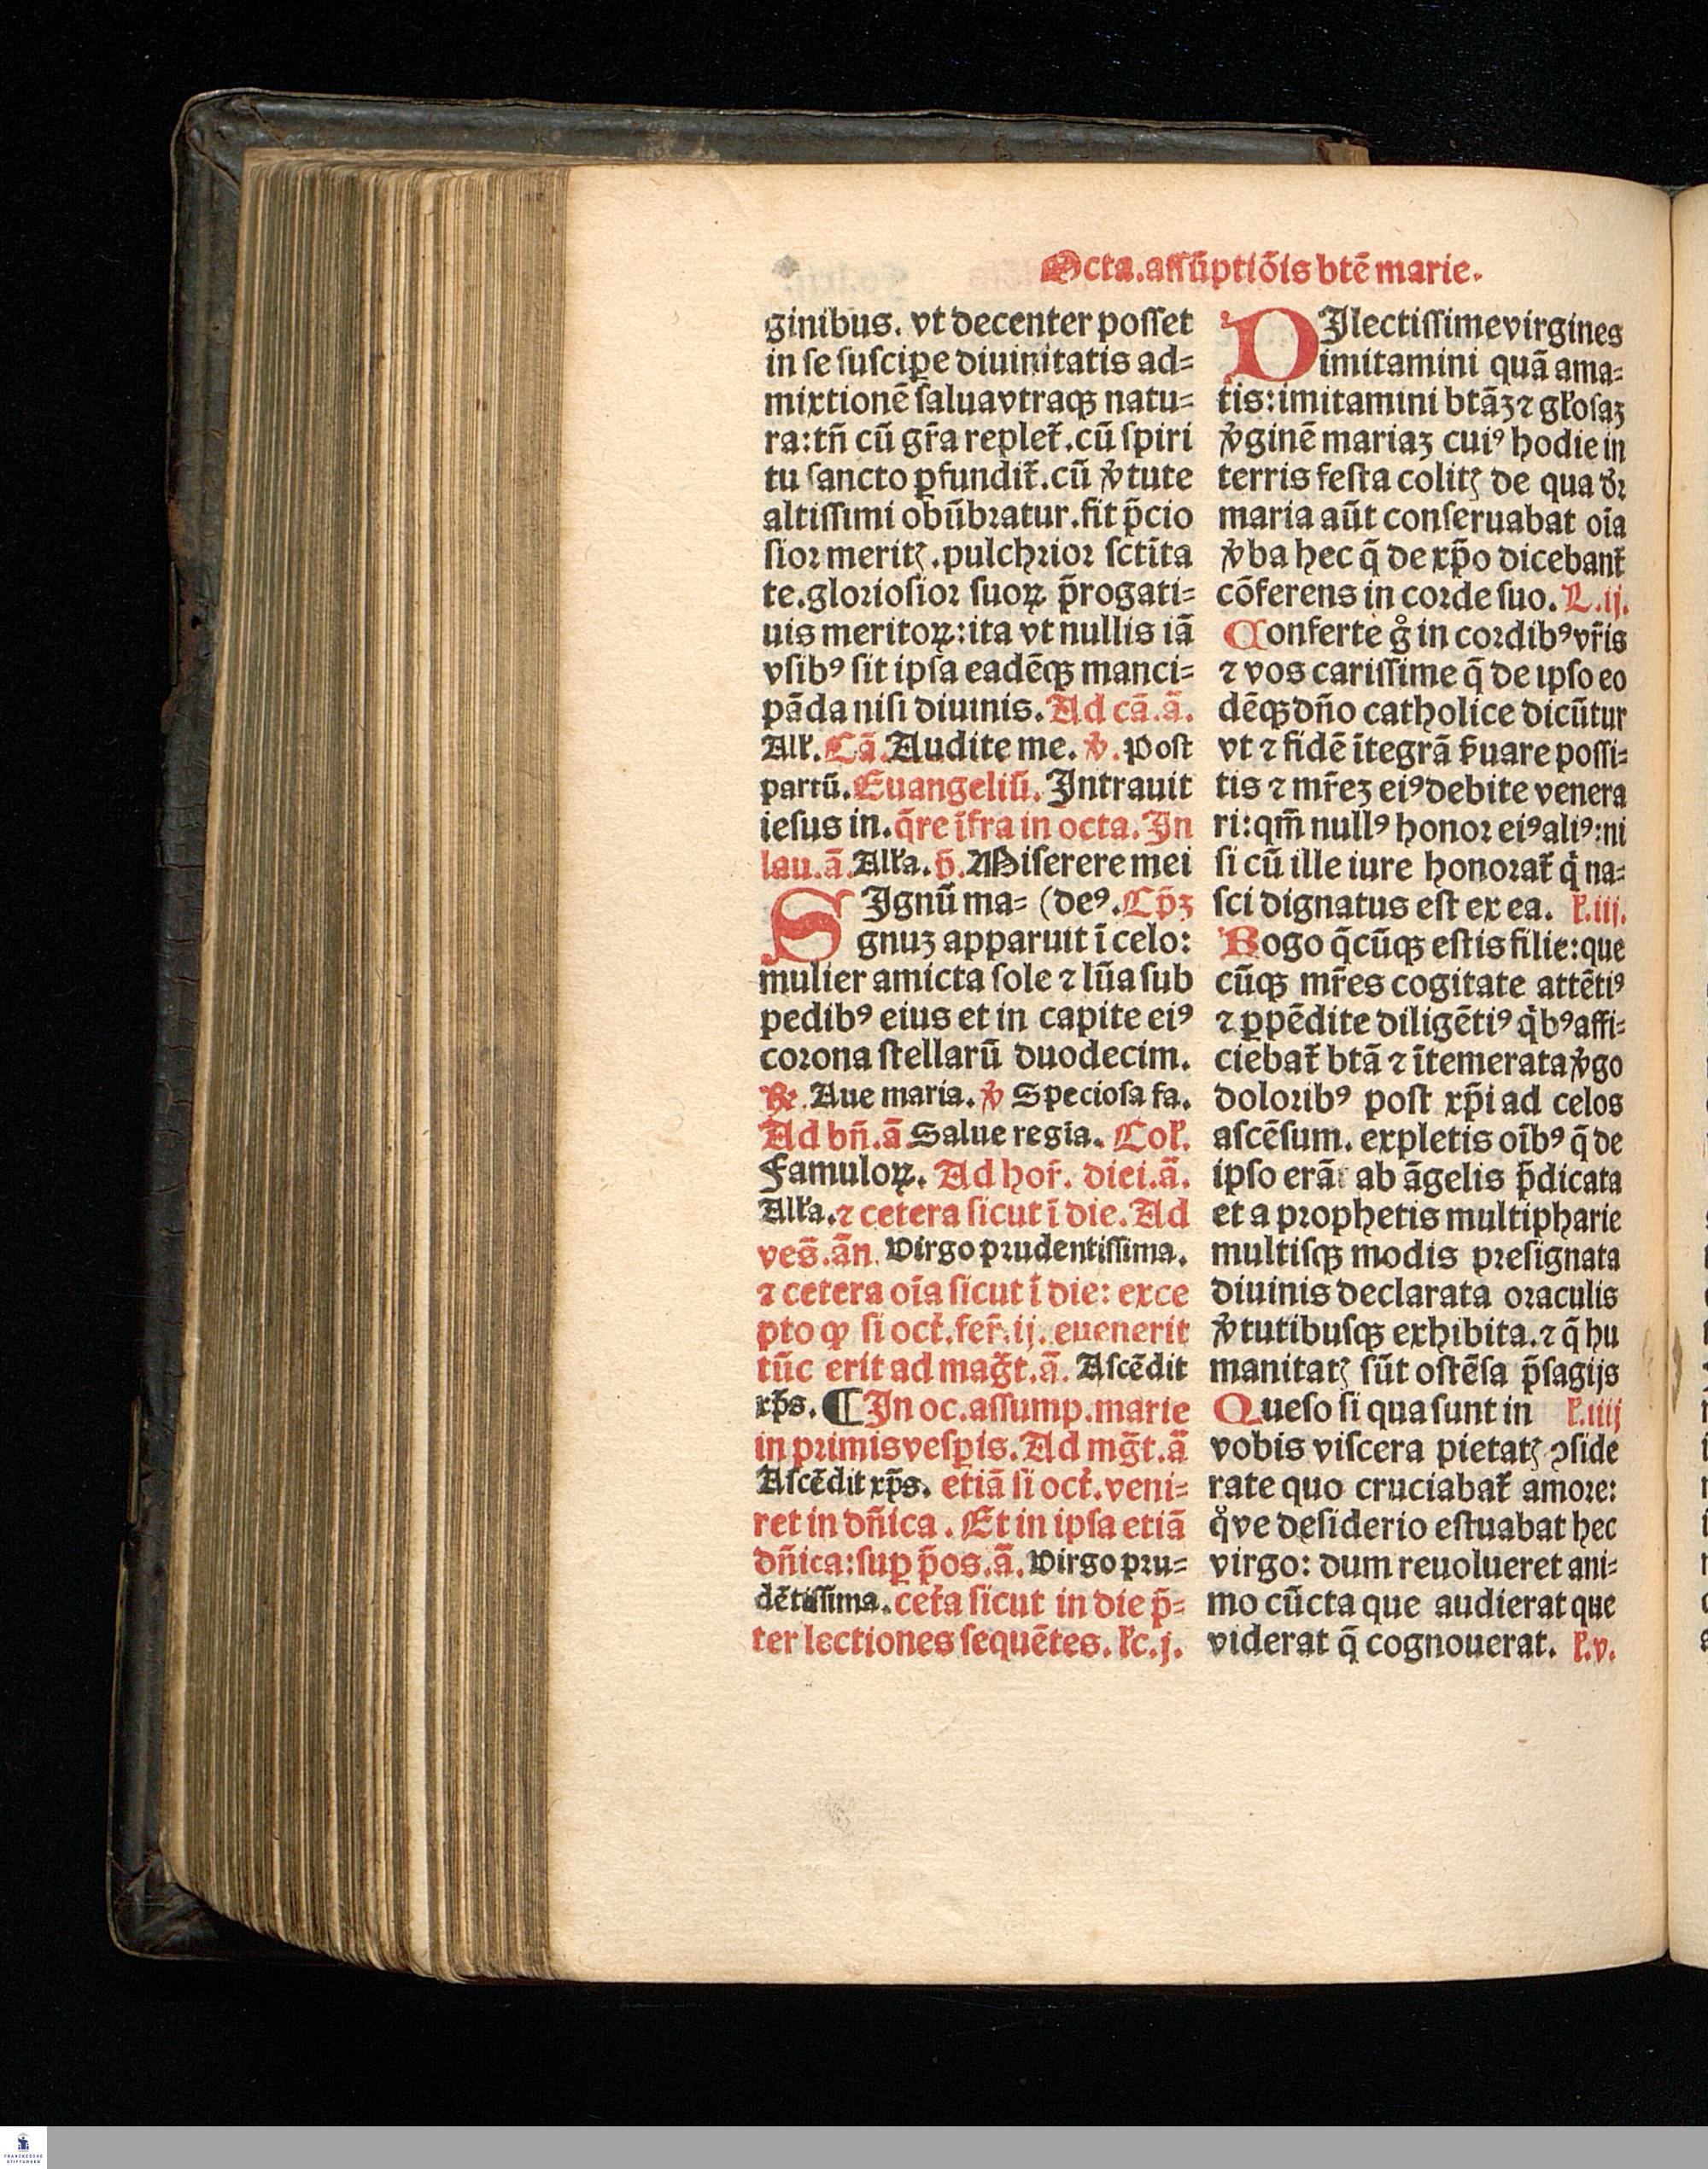 Octa.assūptiōis btē marie.
ginibus. vt decenter posset
in se suscipe diuinitatis ad=
mixtionē salua vtraqꝫ natu=
ra: tn̄ cū gr̄a replet̉. cū spiri
tu sancto ꝑfundit̉. cū v̉tute
altissimi obūbratur. fit p̄cio
sior meritꝭ. pulchrior sctīta
te. gloriosior suoꝝ p̄rogati=
uis meritoꝝ: ita vt nullis iā
vsibꝰ sit ipsa eadēqꝫ manci=
pāda nisi diuinis. Ad cā. ā.
All'. Cā. Audite me. v̉. Post
partū. Euangeliū. Intrauit
iesus in. q̄re īfra in octa. In
lau. ā. All'a. p̄. Miserere mei
SIgnū ma= (deꝰ. Cp̄ꝫ
gnuꝫ apparuit ī celo:
mulier amicta sole ⁊ lūa sub
pedibꝰ eius et in capite eiꝰ
corona stellarū duodecim.
℟. Aue maria. v̉ Speciosa fa.
Ad bn̄. ā Salue regīa. Col'.
Famuloꝝ. Ad hor̉. diei. ā.
All'a. ⁊ cetera sicut ī die. Ad
ves̄. ān. Virgo prudentissima.
⁊ cetera oīa sicut ī die: exce
pto ꝙ si oct̉. fer̉. ij. euenerit
tūc erit ad mag̉t. ā. Ascēdit
xp̄s. ¶ In oc. assump. marie
in primis vesꝑis. Ad mg̉t. ā
Ascēdit xp̄s. etiā si oct̉. veni=
ret in dn̄ica. Et in ipsa etiā
dn̄ica: suꝑ p̄os. ā. Virgo pru=
dētissima. cet̉a sicut in die p̄=
ter lectiones sequētes. l'c. j.
DIlectissime virgines
imitamini quā ama=
tis: imitamini btāꝫ ⁊ gl'osaꝫ
v̉ginē mariaꝫ cuiꝰ hodie in
terris festa colitꝭ de qua dr̄
maria aūt conseruabat oīa
v̉ba hec q̄ de xp̄o dicebant̉
cōferens in corde suo. L. ij.
Conferte gͦ in cordibꝰ vr̄is
⁊ vos carissime q̄ de ipso eo
dēqꝫ dn̄o catholice dicūtur
vt ⁊ fidē ītegrā ẜuare possi=
tis ⁊ mr̄eꝫ eiꝰ debite venera
ri: qm̄ nullꝰ honor eiꝰ aliꝰ: ni
si cū ille iure honorat̉ q̇ na=
sci dignatus est ex ea. l'. iij.
Rogo q̄cūqꝫ estis filie: que
cūqꝫ mr̄es cogitate attētiꝰ
⁊ ꝑpēdite diligētiꝰ q̇bꝰ affi=
ciebat̉ btā ⁊ ītemerata v̉go
doloribꝰ post xp̄i ad celos
ascēsum. expletis oībꝰ q̄ de
ipso erāt ab āgelis p̄dicata
et a prophetis multipharie
multisqꝫ modis presignata
diuinis declarata oraculis
v̉tutibusqꝫ exhibita. ⁊ q̄ hu
manitatꝭ sūt ostēsa p̄sagijs
Queso si qua sunt in l'. iiij
vobis viscera pietatꝭ ꝯside
rate quo cruciabat̉ amore:
qͦ̇ve desiderio estuabat hec
virgo: dum reuolueret ani=
mo cūcta que audierat que
viderat q̄ cognouerat. l'. v.
FRANCKESCHE
STIFTUNGEN